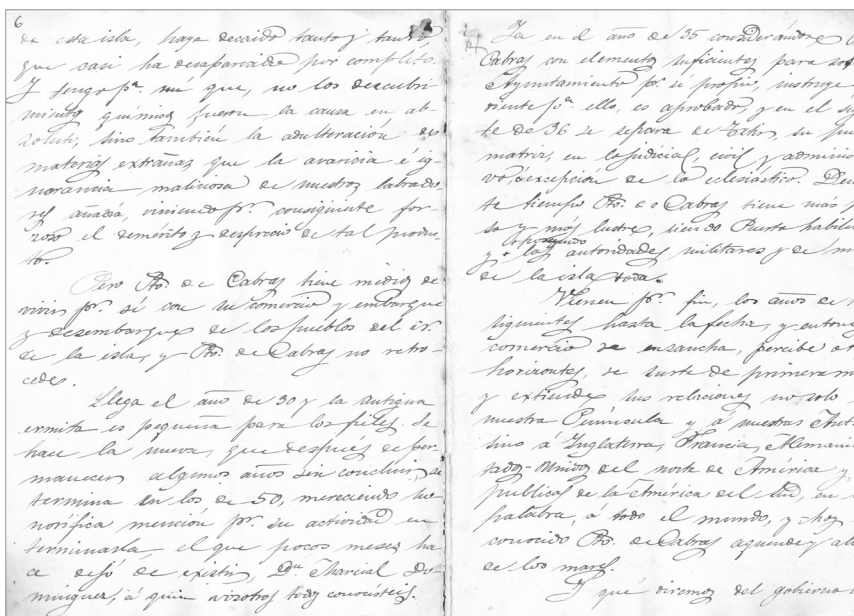 6
de esta isla, haya decaido tanto y tanto,
que casi ha desaparecido por completo.
Y tengo pª. mí que, no los descubri
mientos químicos fueron la causa en ab-
soluto, sino también la adulteración de
materias extrañas que la avaricia é ig-
norancia maliciosa de nuestros labrado
res añadía, viniendo pr. consiguiente for-
zoso el demérito y desprecio de tal produc-
to.
Pero Pto. de Cabras tiene medios de
vivir pr. sí con su comercio y embarque
y desembarque de los pueblos del
de la isla, y Pto. de Cabras no retro-
cede.
Llega el año de 30 y la antigua
ermita es pequeña para los fieles. Se
hace la nueva, que despues de per
manecer algunos años sin concluir, se
termina en los de 50, mereciendo ho
norífica mención pr. su actividad en
terminarla, el que pocos meses ha-
ce dejó de existir, Dn. Marcial Do-
minguez, á quien vosotros todos conocisteis.
Ya en el año de 35 considerándose
Cabras con elementos suficientes para
Ayuntamiento pr. sí propio, instruye
diente pª. ello, es aprobado y en el
te de 36 se separa de Tetir, su
matriz, en lo judicial, civil y adminis
vo, á excepción de lo eclesiástico.
te tiempo Pto. de Cabras tiene más
so y más lustre, siendo Puerto habili
poseyendo
y á las autoridades militares y de
de la isla toda.
Vienen pr. fin, los años de
siguientes hasta la fecha, y entonces
comercio se ensancha, percibe
horizontes, se surte de primera
y extiende sus relaciones no solo
nuestra Península y á nuestras Anti
sino á Inglaterra, Francia, Alemania
tados-Unidos del norte de América y
publicas de la América del Sud, en
palabra, á todo el mundo, y hoy
conocido Pto. de Cabras aquende y
de los mares.
Y qué diremos del gobierno